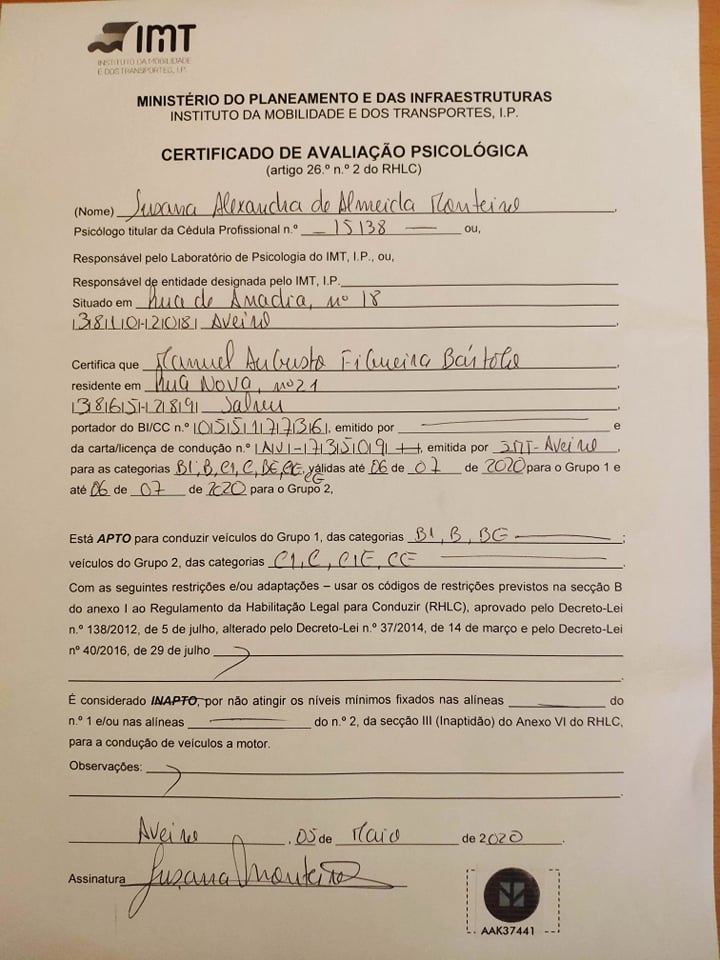 IMT
INSTITUTO DA MOBILIDADE
E DOS TRANSPORTES, I.P.
MINISTÉRIO DO PLANEAMENTO E DAS INFRAESTRUTURAS
INSTITUTO DA MOBILIDADE E DOS TRANSPORTES, I.P.
CERTIFICADO DE AVALIAÇÃO PSICOLÓGICA
(artigo 26.º n.º 2 do RHLC)
(Nome) Susana Alexandra de Almeida Monteiro,
Psicólogo titular da Cédula Profissional n.º 15138 ou,
Responsável pelo Laboratório de Psicologia do IMT, I.P., ou,
Responsável de entidade designada pelo IMT, I.P.
Situado em Rua de Anadia, nº 18
|3|8|1|0|-|2|0|8| Aveiro,
Certifica que Manuel Augusto Filgueira Bártolo,
residente em Rua Nova, nº 21,
|3|8|6|5|-|2|8|9| Salreu,
portador do BI/CC n.º |0|5|5|1|7|7|3|6|, emitido por e
da carta/licença de condução n.º |AV|-|7|3|5|0|9|, emitida por IMT-Aveiro,
para as categorias B1, B, C1, C, BE, CE, válidas até 06 de 07 de 2020 para o Grupo 1 e
CE
até 06 de 07 de 2020 para o Grupo 2,
Está APTO para conduzir veículos do Grupo 1, das categorias B1, B, BE;
veículos do Grupo 2, das categorias C1, C, C1E, CE.
Com as seguintes restrições e/ou adaptações – usar os códigos de restrições previstos na secção B
do anexo I ao Regulamento da Habilitação Legal para Conduzir (RHLC), aprovado pelo Decreto-Lei
n.º 138/2012, de 5 de julho, alterado pelo Decreto-Lei n.º 37/2014, de 14 de março e pelo Decreto-Lei
nº 40/2016, de 29 de julho
É considerado INAPTO, por não atingir os níveis mínimos fixados nas alíneas do
n.º 1 e/ou nas alíneas do n.º 2, da secção III (Inaptidão) do Anexo VI do RHLC,
para a condução de veículos a motor.
Observações:
Aveiro, 05 de Maio de 2020.
Assinatura Susana Monteiro
AAK37441